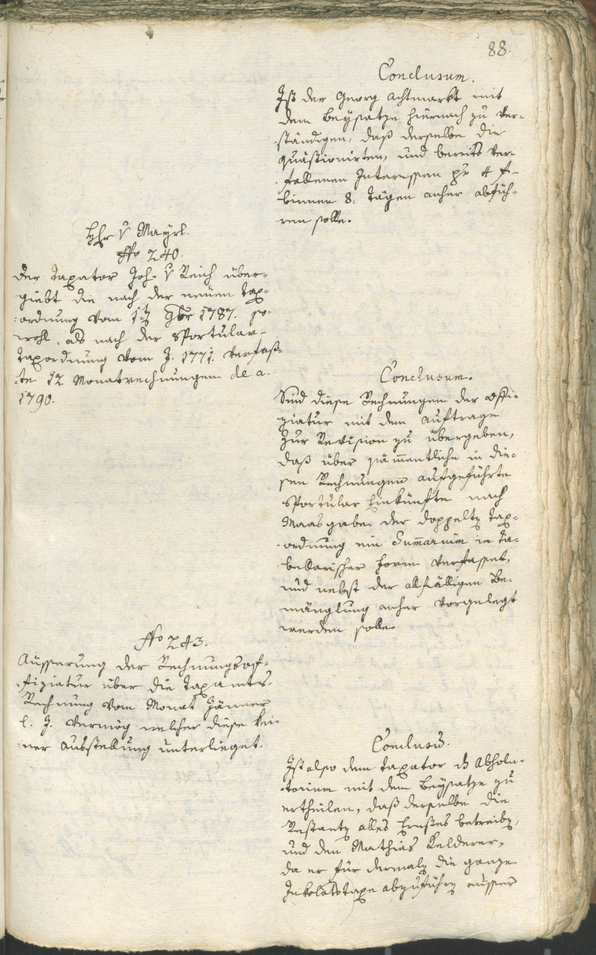 88.
Conclusum.
Ist der Georg Achtmarkt mit
dem Beysatze hiernach zu ver-
ständigen, daß derselbe die
quästionirten, und bereits ver-
fallenen Interessen pr 4 f
binnen 8. Tägen anher abfüh-
ren solle.
Hhr v Mayrl.
No 240.
Der Taxator Joh. v Reich über-
giebt die nach der neuen Tax-
ordnung vom 1t 9br 1787. so-
wohl, als nach der Sportular-
taxordnung vom J. 1771. verfaß-
te 12 Monatrechnungen de a.
1790.
Conclusum.
Sind diese Rechnungen der Offi-
ziatur mit dem Auftrage
zur Revision zu übergeben,
daß über sämmentliche in die-
sen Rechnungen aufgeführte
Sportular Einkünfte nach
Maasgabe der doppelten Tax-
ordnung ein Summarium in ta-
bellarischer Form verfasset,
und nebst der allfälligen Be-
mänglung anher vorgelegt
werden solle.
No 243.
Äusserung der Rechnungsof-
fiziatur über die Taxamts-
Rechnung vom Monat Jänner
l. J. vermög welcher diese kei-
ner Ausstellung unterlieget.
Conclusum.
Ist also dem Taxator das Absolu-
torium mit dem Beysatze zu
ertheilen, daß derselbe die
Restanten alles Ernstes betreiben,
und den Mathias Kelderer,
da er für dermalen die ganze
Inkolatstaxe abzuführen ausser